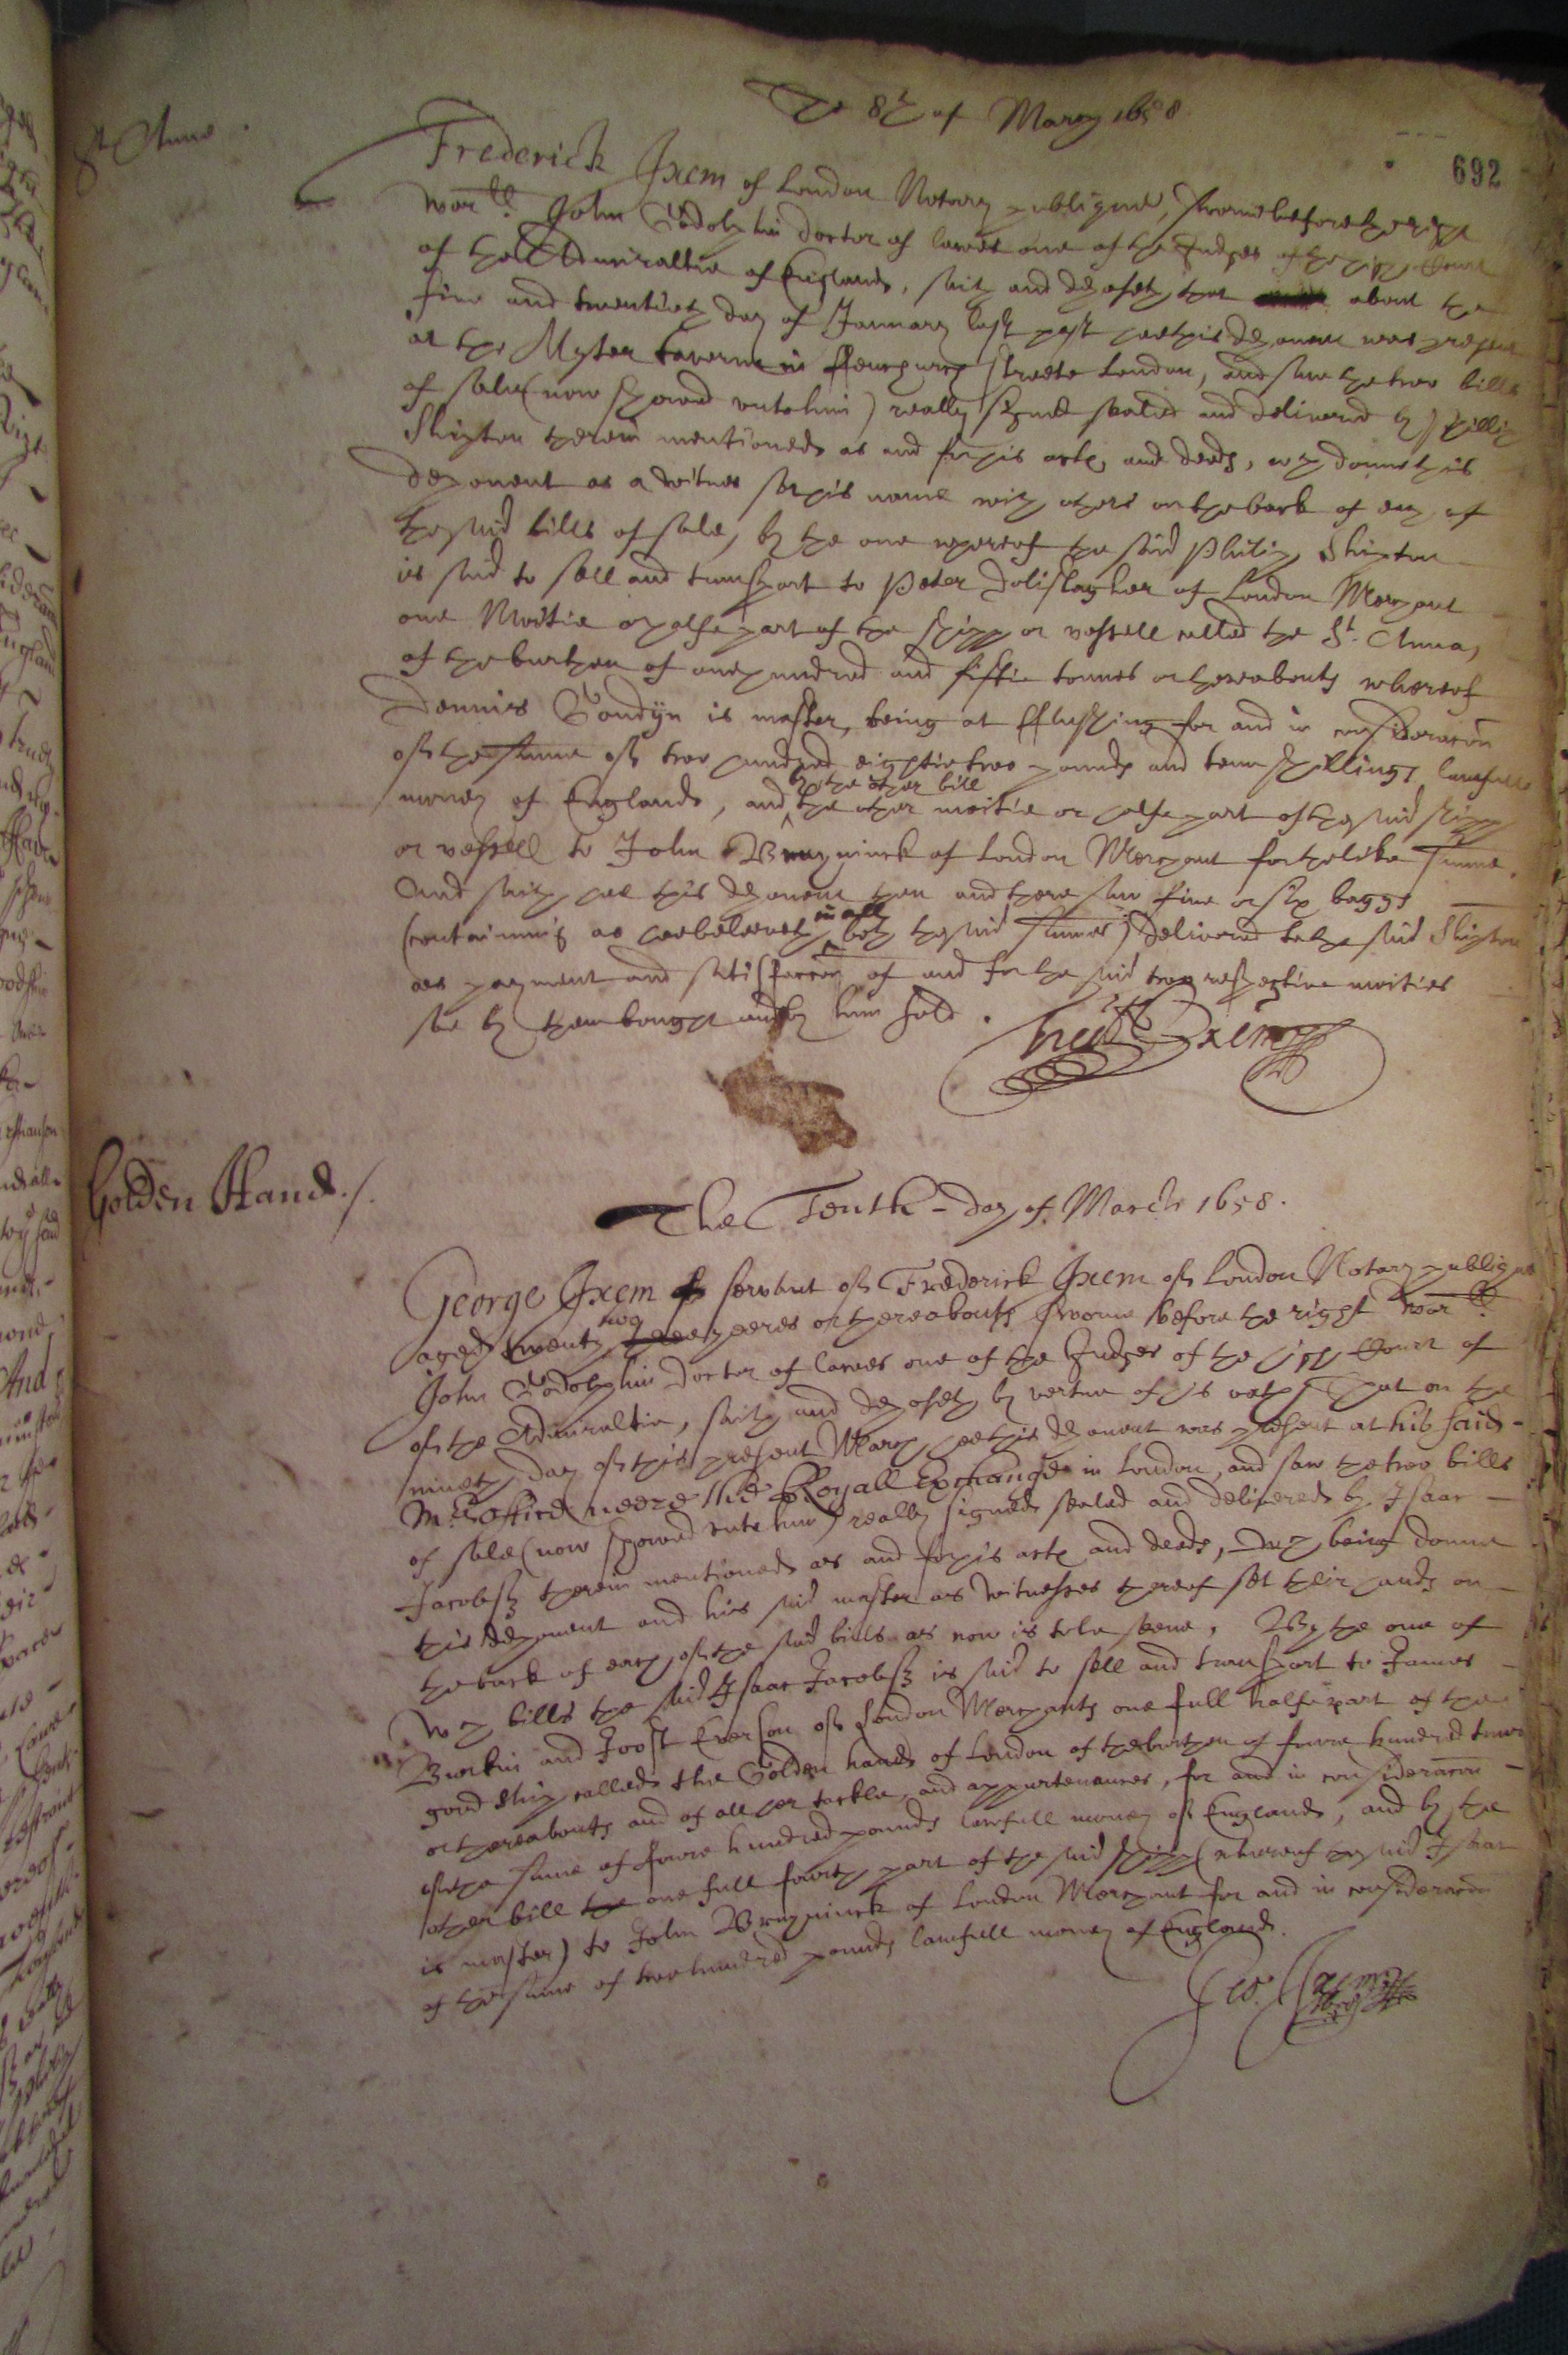 The 8th of March 1658
St Anne
692
Frederick Ixem of London Notary publique, sworne before the right
worll John Godolphin doctor of lawes one of the Judges of the high Court
of the Admiraltie of England, saith and deposeth that about the
five and twentieth day of January last past hee this deponent was present
at the Myter taverne in ffenchurch streete London, and saw the two bills
of sale (now showed unto him) really signed sealed and delivered by Phillip
Skipton therein mentioned as and for his acte and deede, wch donne this
deponent as a witnes set his name with others on the back of each of
the said bills of sale, by the one whereof the said Philip Skipton
is said to sell and transport to Peter Dolislagher of London Merchant
one Moitie or halfe part of the shipp or vessell called the St. Anna,
of the burthen of one hundred and fiftie tonnes or thereabouts whereof
Dennis Gondijn is master, being at fflushing for and in consideracon
of the summe of two hundred eightie two pounds and tenn shillings lawfull
money of England, and by the other bill the other moitie or halfe part of the said shipp
or vessell to John Bruyninck of London Merchant for the like summe.
And saith hee this deponent then and there saw five or six baggs
(containing as hee beleeveth in all both the said summes) delivered to the said Skipton
as payment and satisfaccon of and for the said two respective moities
soe by them bought and by him sold.
Fred: Ixem
Golden Hand./.
The Tenth day of March 1658.
George Ixem servant of Frederick Ixem of London Notary publique
aged twenty two yeeres or thereabouts sworne before the right worll
John Godolphin doctor of lawes one of the Judges of the high Court of
of the Admiraltie, saith and deposeth by vertue of his oath, That on the
nineth day of this present March hee this deponent was present at his said
Mrs. office neere the Royall Exchange in London, and saw the two bills
of sale (now showed unto him) really signed sealed and delivered by Isaac
Jacobsz therein mentioned as and for his acte and deede, which being donne
this deponent and his said master as witnesses thereof set their hands on
the back of each of the said bills as now is to be seene, By the one of
wch bills the said Isaac Jacobsz is said to sell and transport to James
Burkin and Joost Everson of London Merchants one full halfe part of the
good ship called the Golden hand of London of the burthen of foure hundred tonns
or thereabouts and of all her tackle, and appurtenances, for and in consideracon
of the sume of foure hundred pounds lawfull money of England, and by the
other bill the one full fourth part of the said shipp (whereof the said Isaac
is master) to John Bruyninck of London Merchant for and in consideracon
of the sume of two hundred pounds lawfull money of England.
Geo: Ixem